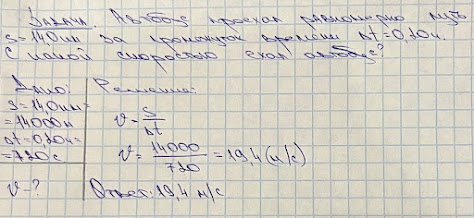 Задача. Автобус проехал равномерно путь
s = 14,0 км за промежуток времени Δt = 0,20 ч.
С какой скоростью ехал автобус?
Дано:
s = 14,0 км =
= 14000 м
Δt = 0,20 ч =
= 720 с
v - ?
Решение:
v = s/Δt
v = 14000/720 = 19,4 (м/с)
Ответ: 19,4 м/с